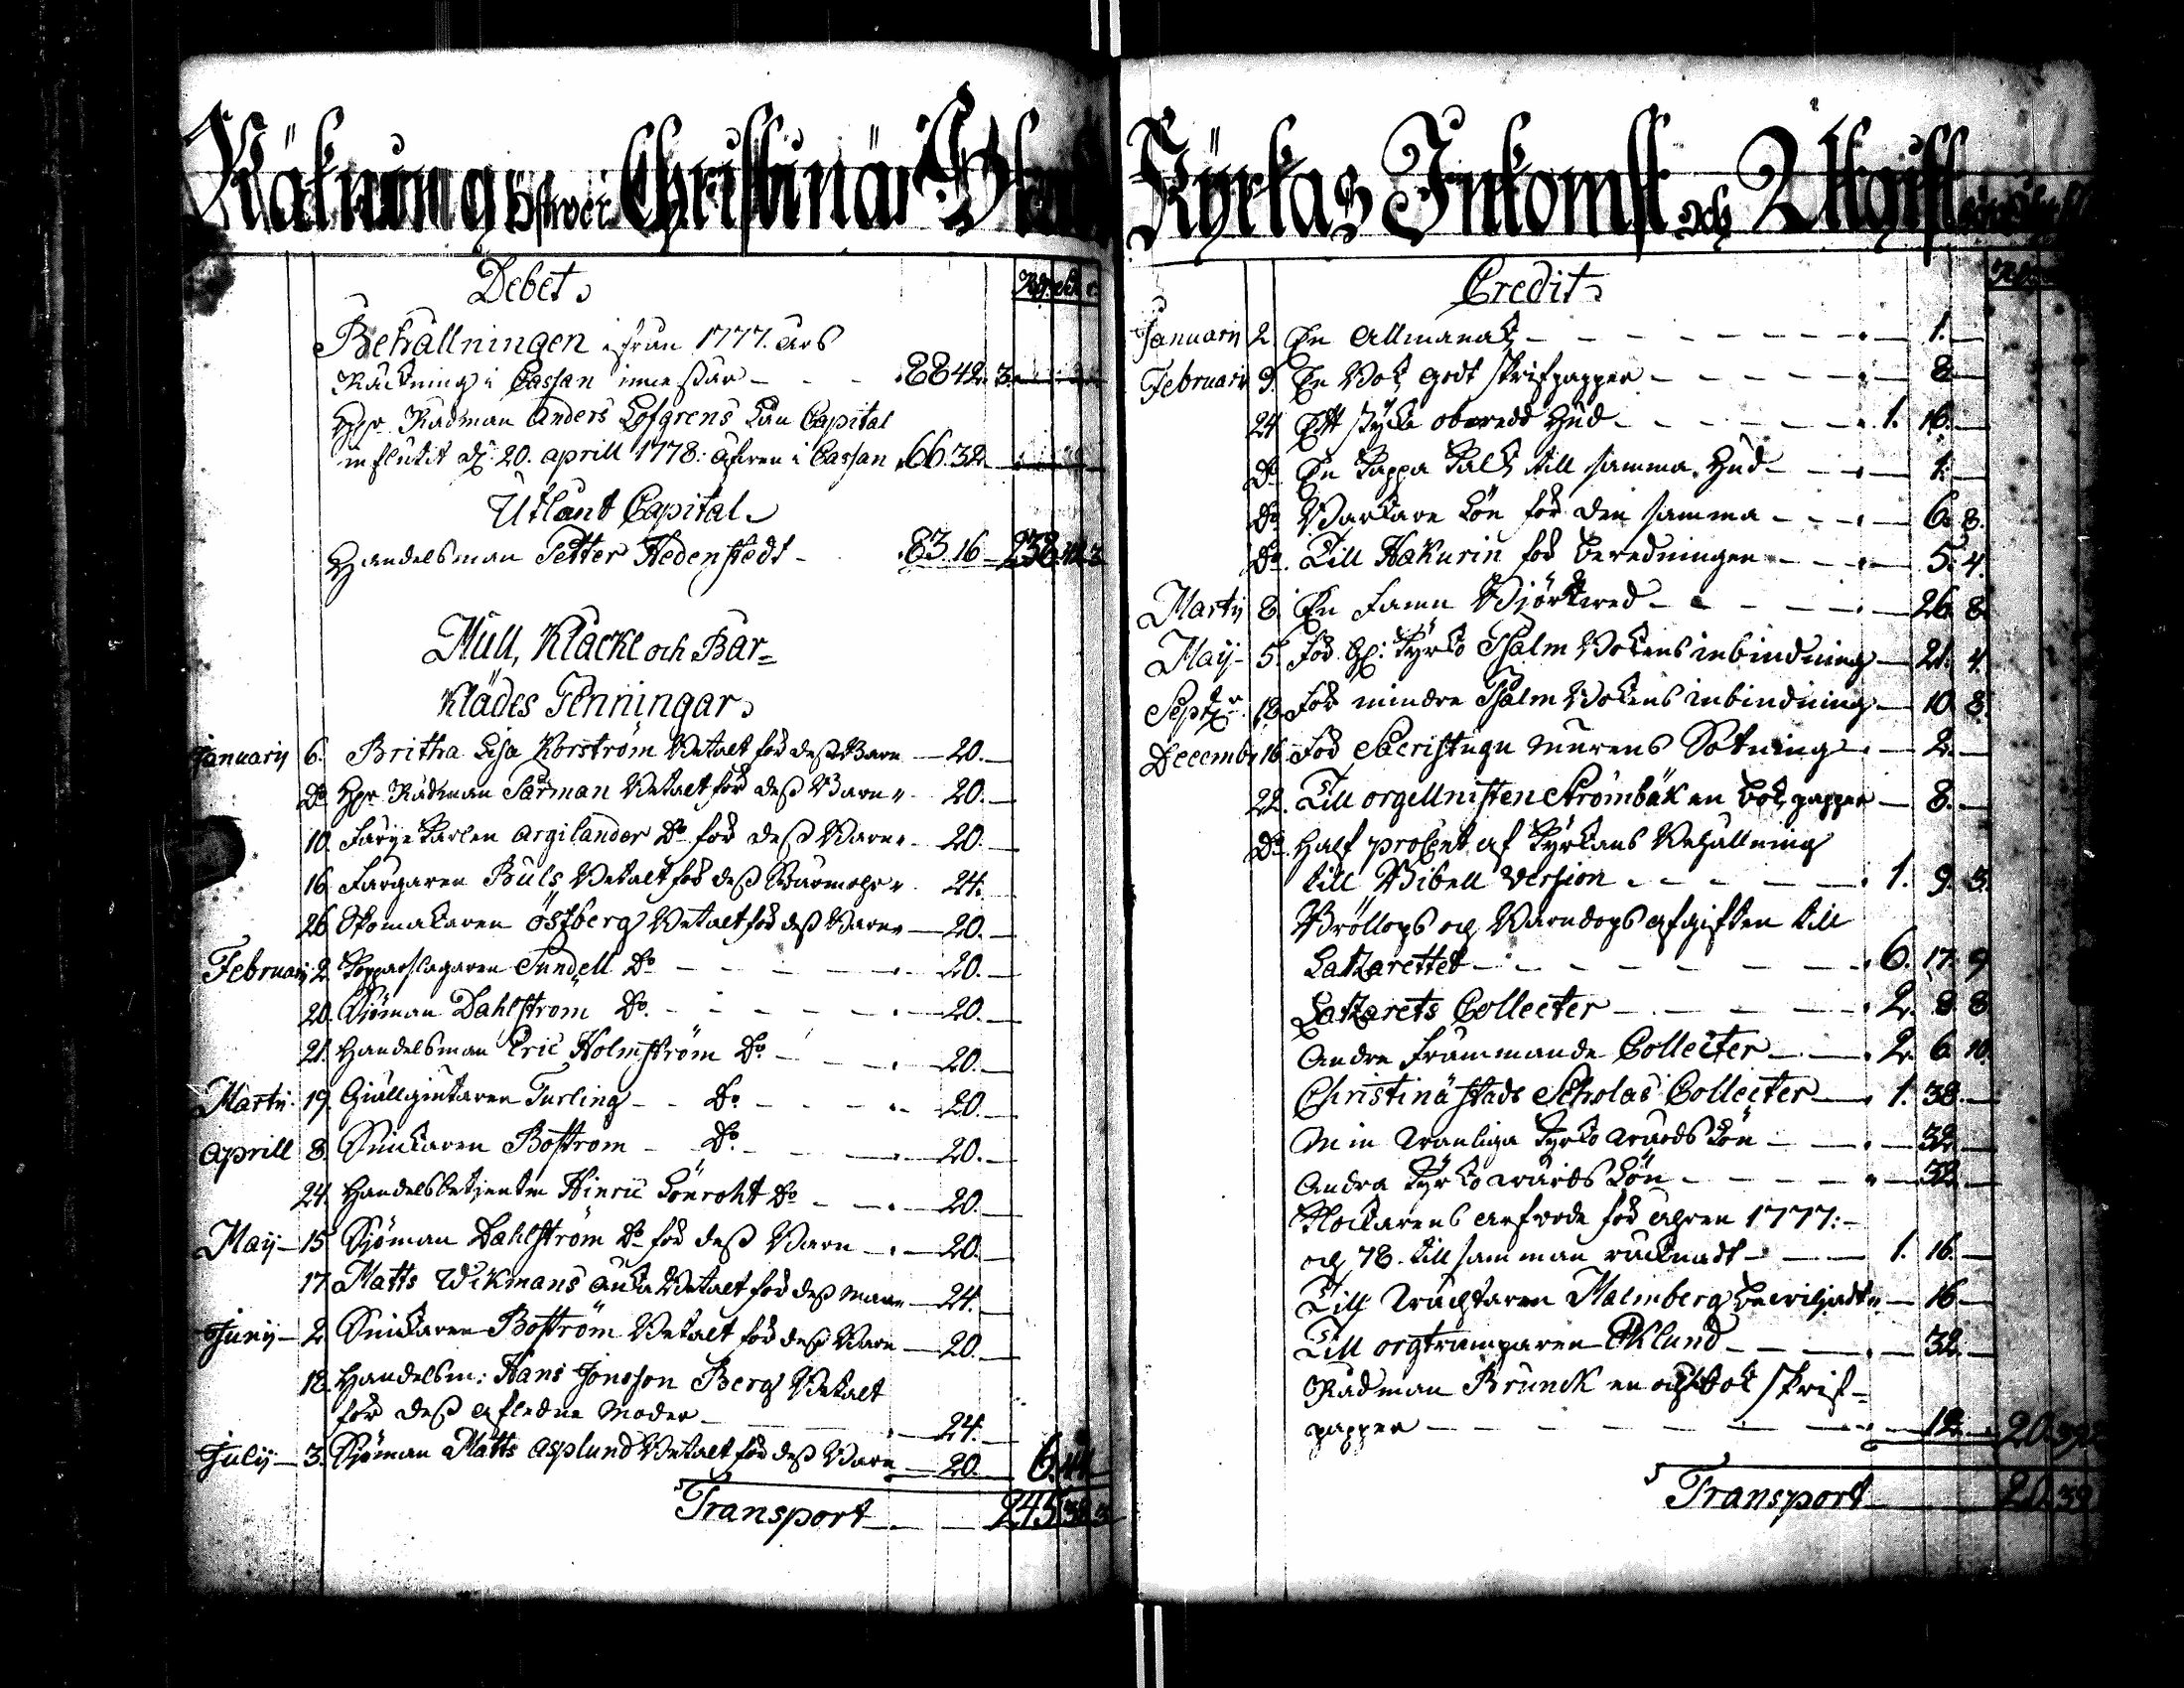 Räkning öfwer Christinä Stads
Debet
Behållningen ifrån 1777. års
Räckning i Cassan innestår - - - 88 42. 3.
Hr Rådman Anders Löfgrens Lån Capital
influtit d. 20. aprill 1778. åhren i Cassan 66. 32. —
Utlant Capital
Handelsman Petter Hedenstedt - 83. 16 — 238. 42. 3
Mull, Klacke och Bår=
Klädes Penningar
Januarij 6. Britha Lisa Korström Betalt för dess Barn — 20. —
Do Hr Rådman Sårman Betalt för dess Barn 20. —
10. Färgekarlen Argilander Do för dess Barn 20. —
16. Färgaren Buls Betalt för dess 24. —
26. Skomakaren Östberg Betalt för dess Barn — 20. —
Februarij 2. Kopparslagaren Sundell Do - - - 20. —
20. Sjöman Dahlström Do - - - 20. —
21. Handelsman Eric Holmström Do - - 20. —
Martij 19. Giällgiutaren Turling - - Do - - - 20. —
Aprill 8. Snickaren Boström - Do - - 20. —
24. Handelsbetjenten Hinric Lönroht Do - - 20. —
Maij 15. Sjöman Dahlström Do för dess Barn — 20. —
17. Matts Wikmans Enka Betalt för dess man — 24. —
Junij 2. Snickaren Boström Betalt för dess Barn — 20. —
18. Handelsm: Hans Jonsson Berg Betalt
för dess afledne Moder - — 24. —
Julij 3. Sjöman Matts Asplund Betalt för dess Barn — 20. — 6. 44
Transport — 245. 38. 3
Kyrkas Inkomst och Utgift
Credit
Januarij 2. En Allmanak - - - — 1. —
Februarij 9. En Bok godt skrifpapper - - - — 8 —
24. Ett stycke oberedd Hud - - - 1. 16. —
Do En Kappa Kalk till samma Hud - — 1. —
Do Barkare Lön för den samma - - — 6. 8.
Do Till Hakurin för beredningen - - — 5. 4.
Martij 8. En famn Björkwed - - - — 26. 8
Maij 5. För Kyrko Psalm Bokens inbindning — 21. 4.
Septbr 18. För mindre Psalm Bokens inbindning — 10. 8.
Decembr 16. För Sacristugu murens Sotning — 2. —
22. Till orgellnisten Strömbäk en bok papper — 8. —
Do Half procent af Kyrkans Behållning
till Bibell version - - - 1. 9. 3.
Bröllops och Barndops afgiften till
Latzarettet - - - 6. 17. 9
Latzarets Collecter - - 2. 8. 8
Andre främmande Collecter — 2. 6. 10.
Christinä stads Scholas Collecter — 1. 38. —
Min wanliga Kyrkowärds Lön - — 32. —
Andra Kyrkowärds Lön - - — 32. —
Klockarens arfwode för åhren 1777:
och 78. till samman räknadt - — 1. 16. —
Till wäcktaren Malmberg bewiljadt — 16 —
Till orgtramparen Eklund - - — 32. —
Rådman Brunck en bok skrif-
papper - - - — 12. — 20. 39
Transport — 20. 39